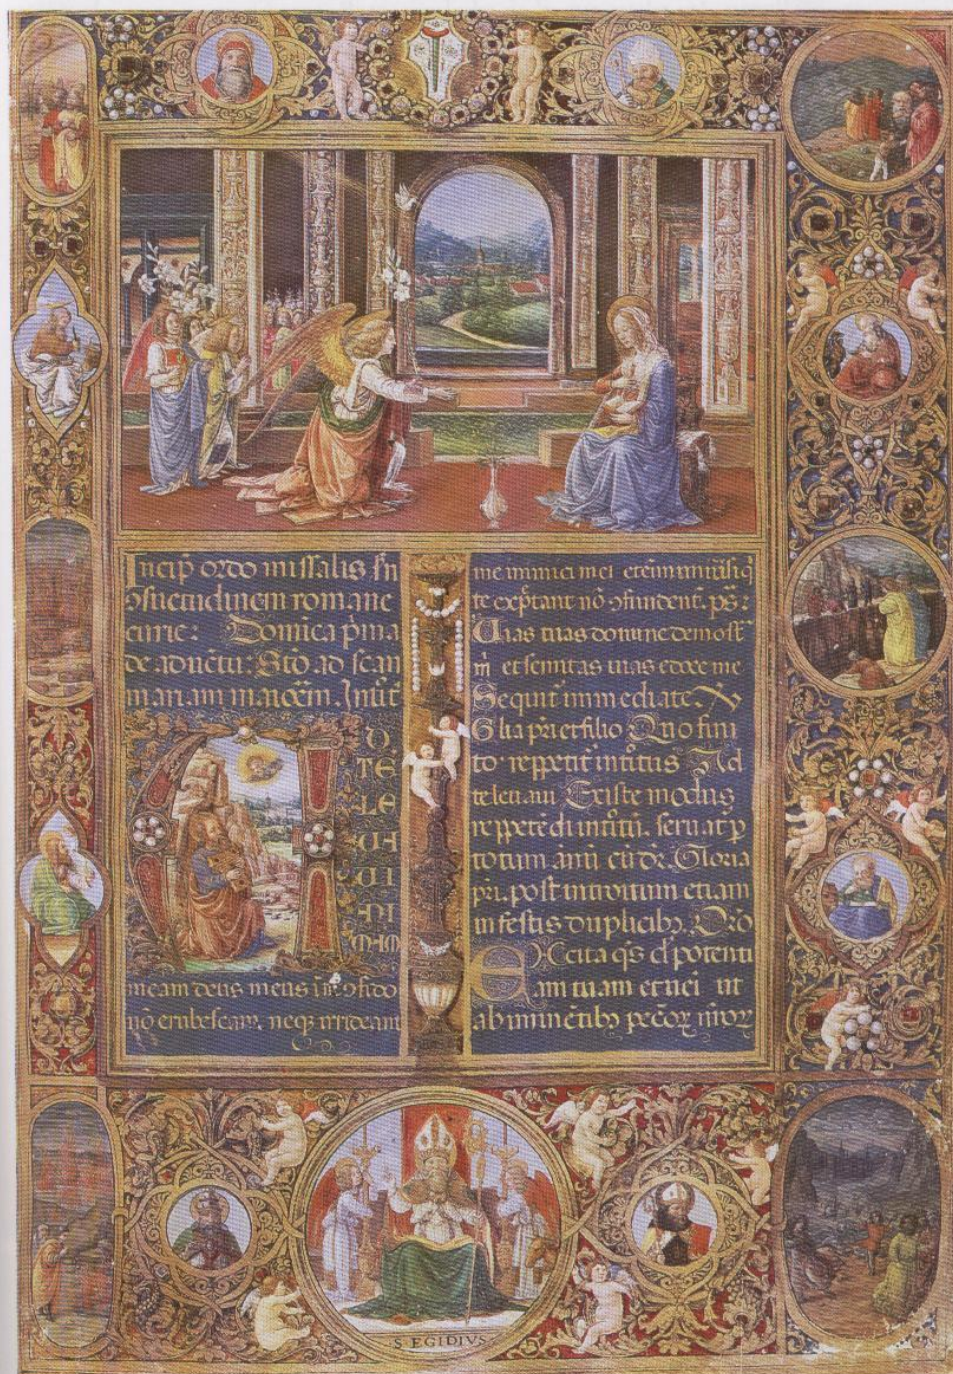 Incip̄ ordo missalis s̄n
ↄsuetudinem romane
curie: Domĩca p̃ma
de aduẽtu: Stõ ad scan
mariam maiorẽm. Introit
D.
TE
LE
UA
UI
NI
MAM
meam deus meus in te ↄfido
nõ erubescam. neq; irrideant
me inimici mei etenim uniũsi q̃
te expectant nõ ↄfundent. ps̃:
Uias tuas domine demostr̃
m̃ et semitas tuas edoce me
Sequit̃ immediate
Glia pr̃i et filio Quo fini
to· reppetit̃ introitus Ad
te leuaui Et iste modus
reppetẽdi introitũ. seruat̃ p̃
totum ãnũ etc̃ dr̃. Gloria
pr̃i. post introitum etiam
in festis duplicib;. Oro
EXcita q̃s dñe potenti
am tuam et ueni ut
ab iminẽtib; pecc̃oꝝ nr̃oꝝ
S EGIDIVS